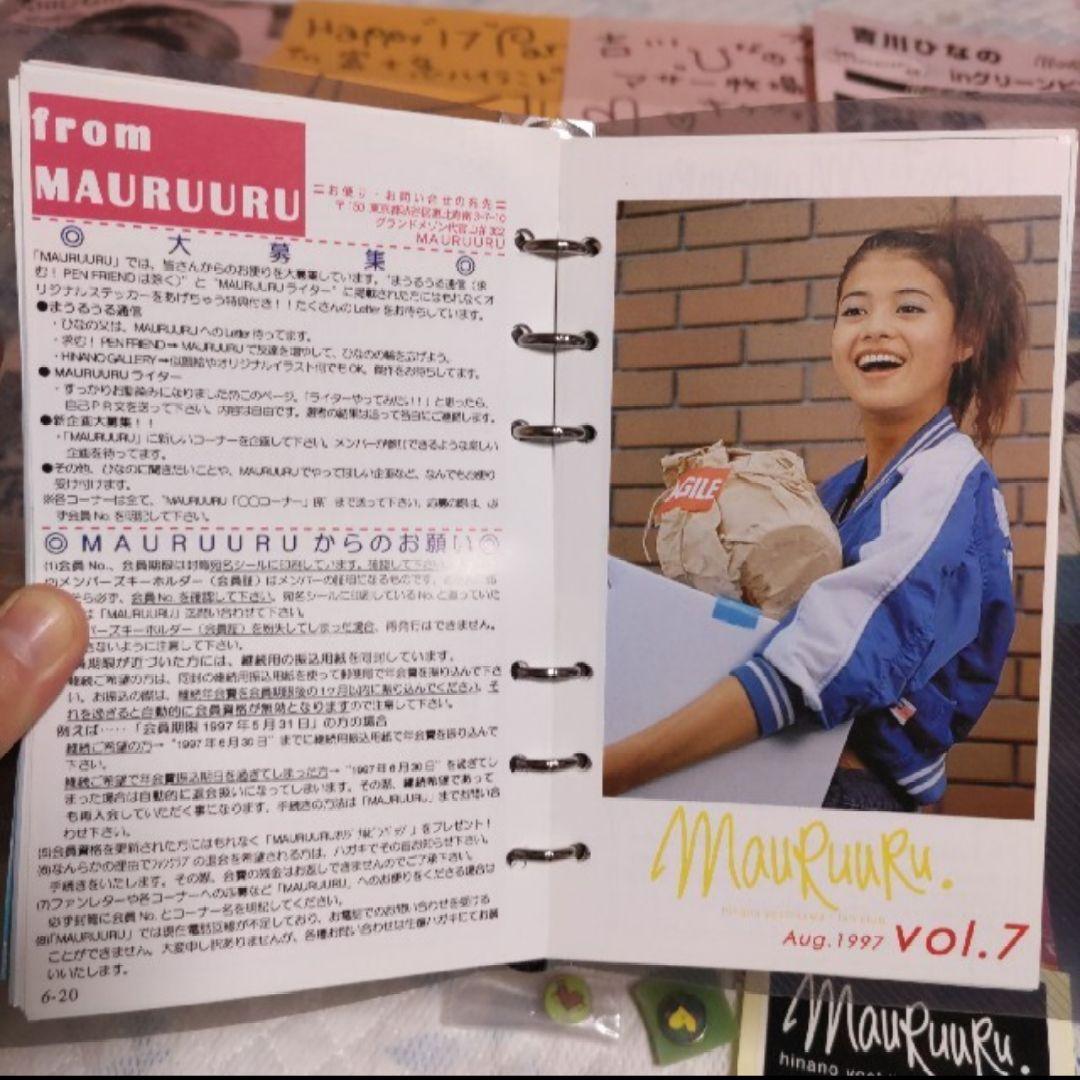 Happy 17 Par
吉川ひなの
マザー牧場
吉川ひなの
inグリーン
from
MAURUURU
=お便り・お問い合せの宛先=
〒150 東京都渋谷区恵比寿南3-7-10
グランドメゾン代官山 302
MAURUURU
◎ 大 募 集 ◎
「MAURUURU」では、皆さんからのお便りを大募集しています。"まうるうる通信(求
む! PEN FRIENDは除く)"と"MAURUURUライター"に掲載された方にはもれなくオ
リジナルステッカーをあげちゃう特典付き!!たくさんのLetterをお待ちしています。
●まうるうる通信
・ひなの父は、MAURUURUへのLetter待ってます。
・求む! PEN FRIEND⇒MAURUURUで友達を増やして、ひなのの輪を広げよう。
・HINANO GALLERY⇒似顔絵やオリジナルイラスト何でもOK。傑作をお待ちしてます。
●MAURUURUライター
・すっかりお馴染みになりましたこのページ。「ライターやってみたい!!」と思ったら、
自己PR文を送って下さい。内容は自由です。選考の結果は追って当日にご連絡します。
●新企画大募集!!
・「MAURUURU」に新しいコーナーを企画して下さい。メンバーが参加できるような楽しい
企画を待ってます。
●その他、ひなのに聞きたいことや、MAURUURUでやってほしい企画など、なんでもお便り
受け付けます。
※各コーナーは全て、"MAURUURU「〇〇コーナー」係"まで送って下さい。応募の際は、必
ず会員No.を明記して下さい。
◎MAURUURUからのお願い◎
(1)会員No.、会員期限は封筒宛名シールに印刷しています。確認して下さい。
(2)メンバーズキーホルダー(会員証)はメンバーの証明になるものです。
そら必ず、会員No.を確認して下さい。宛名シールに印刷しているNo.と違っていた
は「MAURUURU」迄問い合わせて下さい。
バーズキーホルダー(会員証)を紛失してしまった場合、再発行はできません。
さないように注意して下さい。
員期限が近づいた方には、継続用の振込用紙を同封しています。
継続ご希望の方は、同封の継続用振込用紙を使って郵便局で年会費を振り込んで下さ
い。お振込の際は、継続年会費を会員期限後の1ヶ月以内に振り込んでください。そ
れを過ぎると自動的に会員資格が無効となりますので注意して下さい。
例えば‥‥「会員期限 1997年5月31日」の方の場合
継続ご希望の方→"1997年6月30日"までに継続用振込用紙で年会費を振り込んで
下さい。
継続ご希望で年会費振込期日を過ぎてしまった方→"1997年6月30日"を過ぎてし
まった場合は自動的に退会扱いになってしまいます。その際、継続希望であって
も再入会していただく事になります。手続きの方法は「MAURUURU」までお問い合
わせ下さい。
(5)会員資格を更新された方にはもれなく「MAURUURUｵﾘｼﾞﾅﾙﾋﾟﾝﾊﾞｯｼﾞ」をプレゼント!
(6)なんらかの理由でﾌｧﾝｸﾗﾌﾞの退会を希望される方は、ハガキでその旨お知らせ下さい。
手続きをいたします。その際、会費の残金はお返しできませんのでご了承下さい。
(7)ファンレターや各コーナーへの応募など「MAURUURU」へのお便りをくださる場合は
必ず封筒に会員No.とコーナー名を明記してください。
(8)「MAURUURU」では現在電話回線が不足しており、お電話でのお問い合わせを受ける
ことができません。大変申し訳ありませんが、各種お問い合わせは往復ハガキにてお願
いいたします。
6-20
AGILE
MAURUURU.
hinano yoshikawa fan club
Aug.1997 vol.7
MAURUURU.
hinano